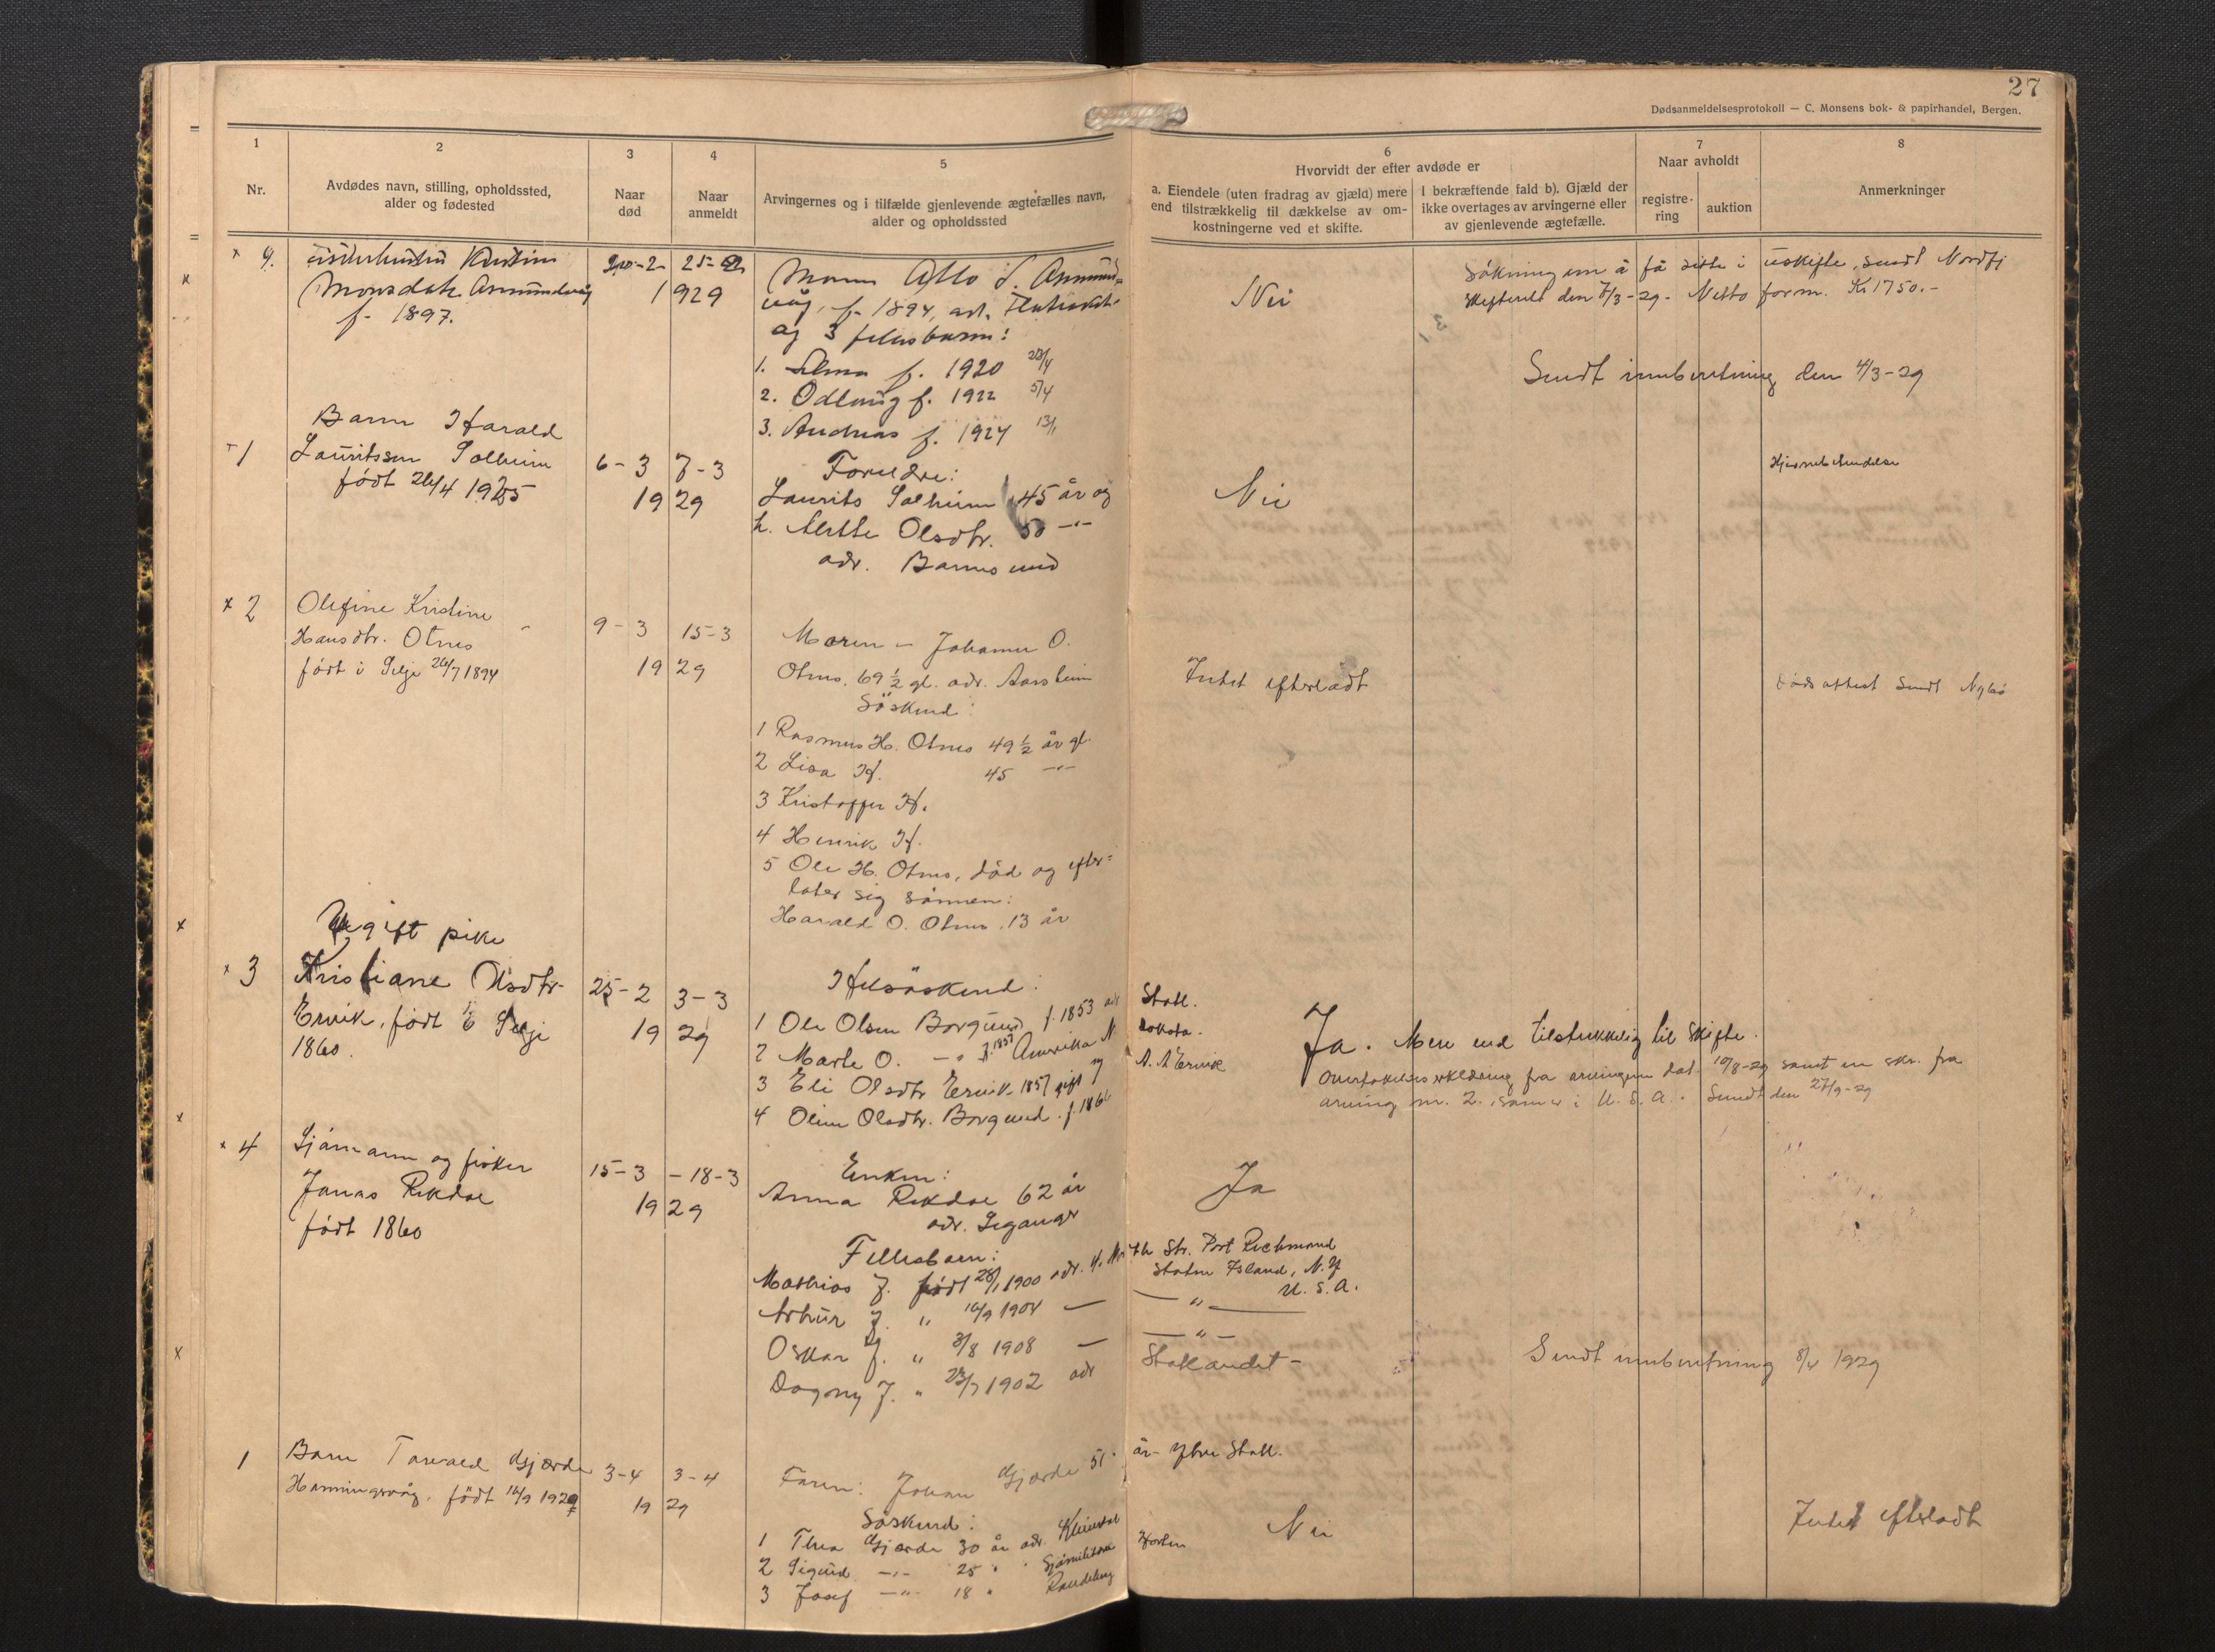 27
Dødsanmeldelsesprotokoll — C. Monsens bok- & papirhandel, Bergen.
1
Nr.
2
Avdødes navn, stilling, opholdssted,
alder og fødested
3
Naar
død
4
Naar
anmeldt
5
Arvingernes og i tilfælde gjenlevende ægtefælles navn,
alder og opholdssted
6
Hvorvidt der efter avdøde er
a. Eiendele (uten fradrag av gjæld) mere
end tilstrækkelig til dækkelse av om-
kostningerne ved et skifte.
I bekræftende fald b). Gjæld der
ikke overtages av arvingerne eller
av gjenlevende ægtefælle.
7
Naar avholdt
registre-
ring
auktion
8
Anmerkninger
x 9.
Kristine
f. 1897.
1929
Mann
f. 1894, adr.
og 3 fellesbarn:
1. Alma f. 1920 28/4
2. Odlaug f. 1922 5/4
3. Andreas f. 1924 13/1
Nei
Søkning om å få sitte i uskifte, sendt Nordfj
den 7/3-29. Netto form. Kr 1750.-
Sendt innberetning den 4/3-29
1
Barn Harald
Lauritssen Solheim
født 26/4 1925
6-3 7-3
1929
Foreldre:
Laurits Solheim 45 år og
h. Olsdtr. 50 -"-
adr. Barmsund
Nei
x 2
Olefine Kristine
Hansdtr. Otnes
født i Selje 26/7 1894
9-3 15-3
1929
Moren - Johanne O.
Otnes. 69 1/2 gl. adr. Aarsheim
Søskend:
1 Rasmus H. Otnes 49 1/2 år gl.
2 Lisa H. 45 -"-
3 Kristoffer H.
4 Henrik H.
5 Ole H. Otnes, død og efter=
later sig sønnen:
Harald O. Otnes. 13 år
Intet efterladt
Dødsattest sendt
x 3
Ugift pike
Kristiane Olsdtr.
Ervik, født i Selje
1860.
25-2 3-3
1929
Helsøskend:
1 Ole Olsen Borgund f. 1853 adr Statl.
2 Marte O. -"- Amerika N. Dakota.
3 Eli Olsdtr Ervik 1857 gift m A. A Ervik
4 Oline Olsdtr. Borgund. f. 186
Ja. Mere end tilstrekkelig til skifte.
Overtakelseserklæring fra arvingene dat. 10/8-29 samt en skr. fra
arving nr. 2. som er i U.S.A. Sendt den 27/9-29
x 4
Sjømann og fisker
Jonas Rekdal
født 1860
15-3 - 18-3
1929
Enken:
Anna Rekdal 62 år
adr. Leganger
Fellesbarn:
Mathias J. født 28/1 1900 adr. Str. Port Richmond
Staten Island, N.Y
U.S.A.
Arthur J. " 16/9 1904 — — " —
Oskar J. " 3/8 1908 — — " —
Dagny J. " 23/7 1902 adr Stadlandet -
Ja
Sendt innberetning 8/4 1929
1
Barn Torvald Gjerde
Honningsvåg, født
3-4 3-4
1929
Faren: Johan Gjerde 51 år - Ytre Statl.
Søskend:
1 Thea Gjerde 30 år adr.
2 Sigurd -"- 25 " " Sjømilitær Horten
3 Josef -"- 18 "
Nei
Intet efterladt